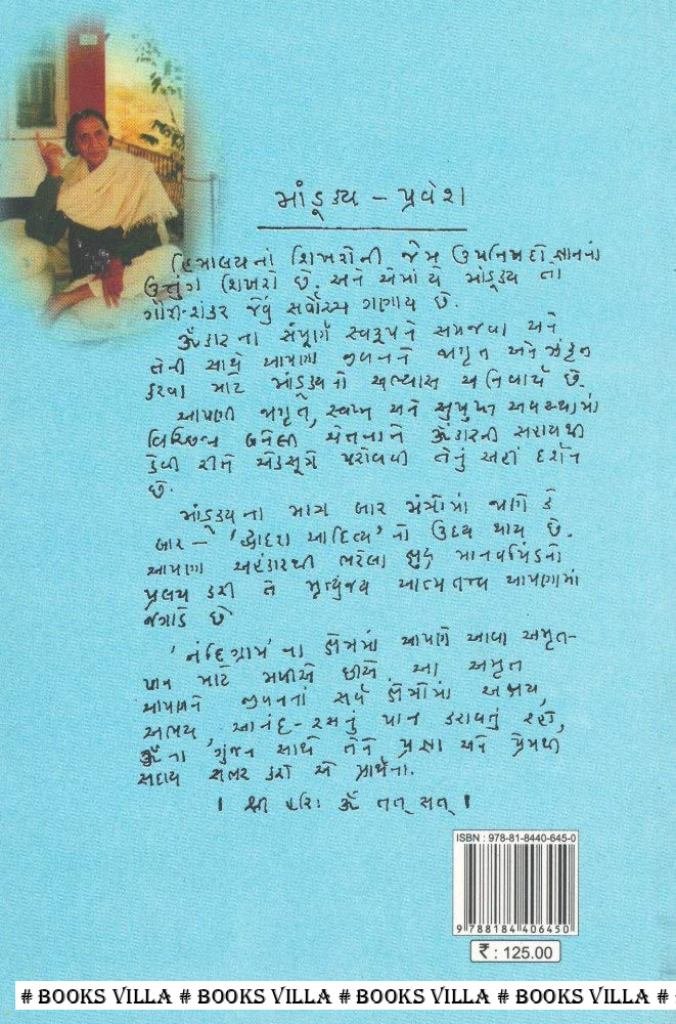 માંડૂક્ય - પ્રવેશ
હિમાલયનાં શિખરોની જેમ ઉપનિષદો જ્ઞાનનાં
ઉત્તુંગ શિખરો છે. અને એમાંયે માંડૂક્ય તો
ગૌરી-શંકર જેવું સર્વોચ્ચ ગણાય છે.
ૐકારના સંપૂર્ણ સ્વરૂપને સમજવા અને
તેની સાથે આપણા જીવનને જાગૃત અને ઝંકૃત
કરવા માટે માંડૂક્યનો અભ્યાસ અનિવાર્ય છે.
આપણી જાગૃત, સ્વપ્ન અને સુષુપ્ત અવસ્થામાં
વિચ્છિન્ન બનેલી ચેતનાને ૐકારની સહાયથી
કેવી રીતે એકસૂત્રે પરોવવી તેનું અહીં દર્શન
છે.
માંડૂક્યના માત્ર બાર મંત્રોમાં જાણે કે
બાર - 'દ્વાદશ આદિત્ય'નો ઉદય થાય છે.
આપણા અહંકારથી ભરેલા ક્ષુદ્ર માનવપિંડનો
પ્રલય કરી તે મૃત્યુંજય આત્મતત્ત્વ આપણામાં
જગાડે છે
'નંદિગ્રામ'ના ક્ષેત્રમાં આપણે આવા અમૃત-
પાન માટે મળીએ છીએ. આ અમૃત
આપણને જીવનનાં સર્વ ક્ષેત્રોમાં અક્ષય,
અભય, આનંદ-રસનું પાન કરાવતું રહો,
ૐના ગુંજન સાથે તેને પ્રજ્ઞા અને પ્રેમથી
સદાય સભર કરો એ પ્રાર્થના.
। શ્રી હરિઃ ૐ તત્ સત્ ।
ISBN : 978-81-8440-645-0
9 788184 406450
₹ : 125.00
# BOOKS VILLA # BOOKS VILLA # BOOKS VILLA # BOOKS VILLA #